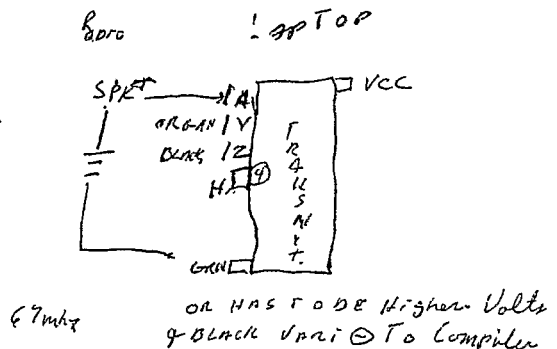 Radio
LapTOP
SPKR
1A
VCC
ORGAN 1Y
BLACK 1Z
H
4
TRANSMIT.
GRN
67mhz
OR HAS TO BE Higher Volts
& BLACK VARI ⊖ To Compiler